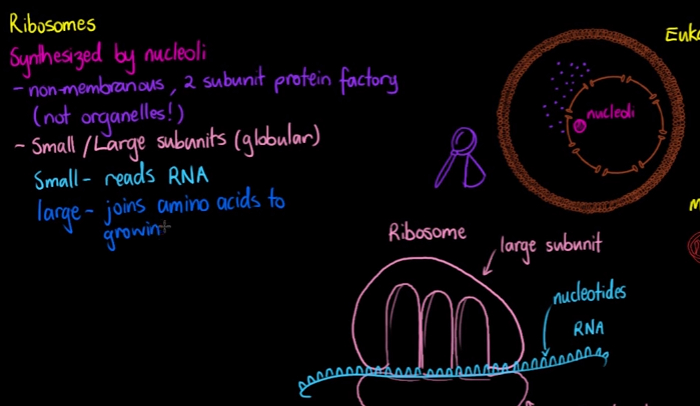 Ribosomes
Synthesized by nucleoli
- non-membranous, 2 subunit protein factory
(not organelles!)
- Small/Large subunits (globular)
Small - reads RNA
large - joins amino acids to
growin
nucleoli
Ribosome
large subunit
nucleotides
RNA